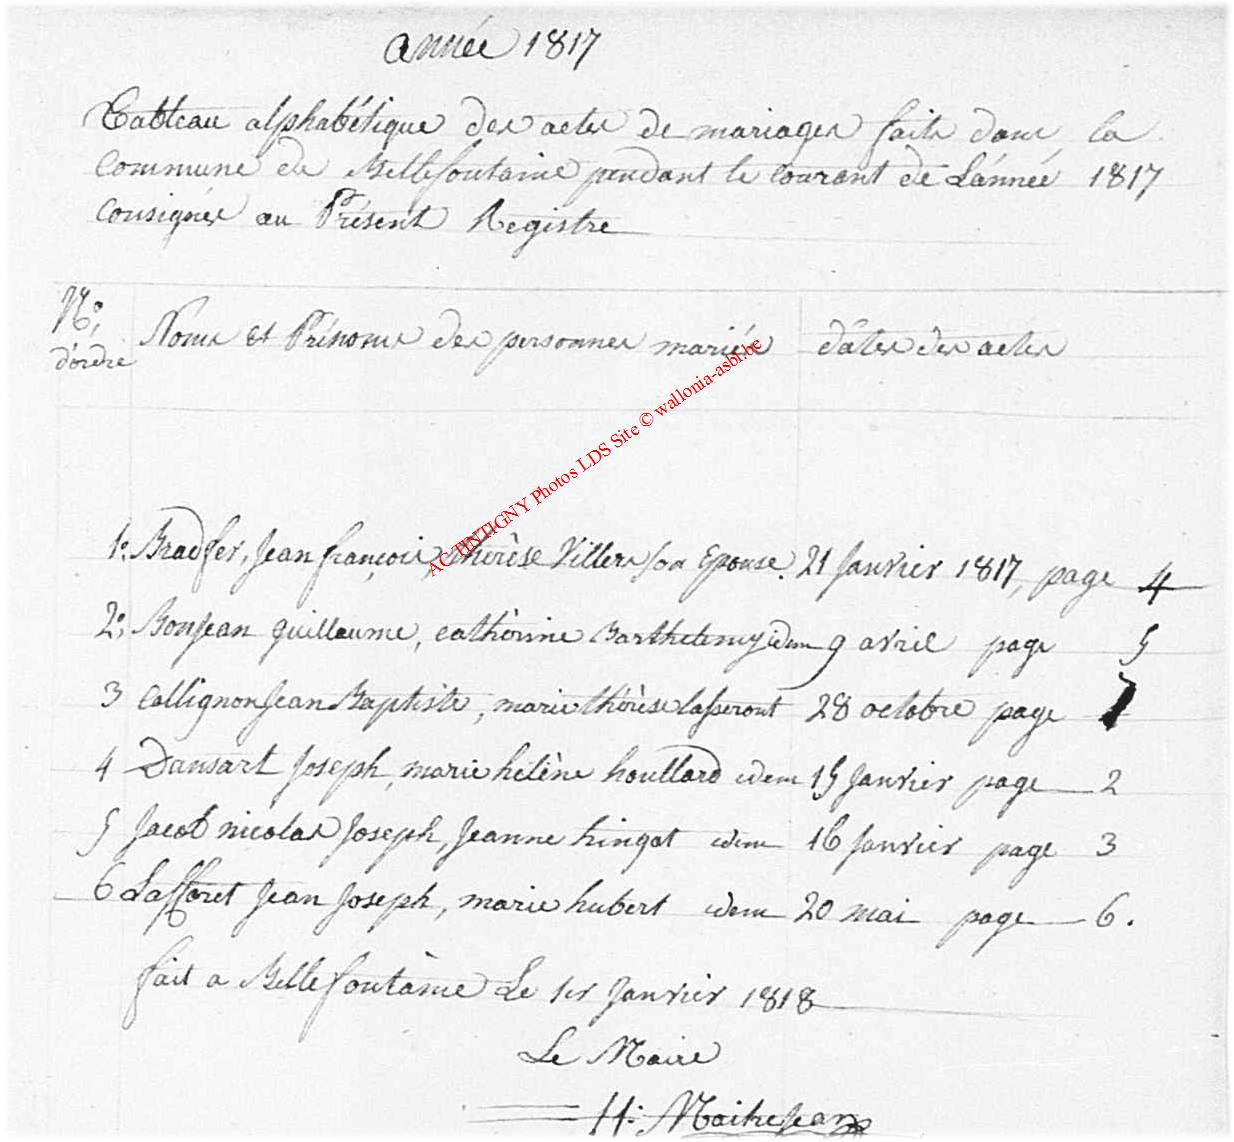 année 1817
Tableau alphabétique des actes de mariages faits dans la
Commune de Bellefontaine pendant le courant de L'année 1817
consignés au Présent Registre
N.o d'ordre Noms et Prénoms des personnes mariées dâtes des actes
1.o Bradfer, Jean françois, thérèse Villers son Epouse. 21 Janvier 1817, page 4
2.o Bonjean guillaume, cathèrine Barthelemy idem 9 avril page 5
3 Collignon Jean Baptiste, marie thérèse Lasseront 28 octobre page 7
4 Dansart Joseph, marie hélène houllard idem 15 Janvier page 2
5 Jacob nicolas Joseph, Jeanne hingot idem 16 Janvier page 3
6 Lafforet Jean Joseph, marie hubert idem 20 mai page 6.
fait a Bellefontaine Le 1er Janvier 1818
Le Maire
H: MaitreJean
AC TINTIGNY Photos LDS Site © wallonia-asbl.be